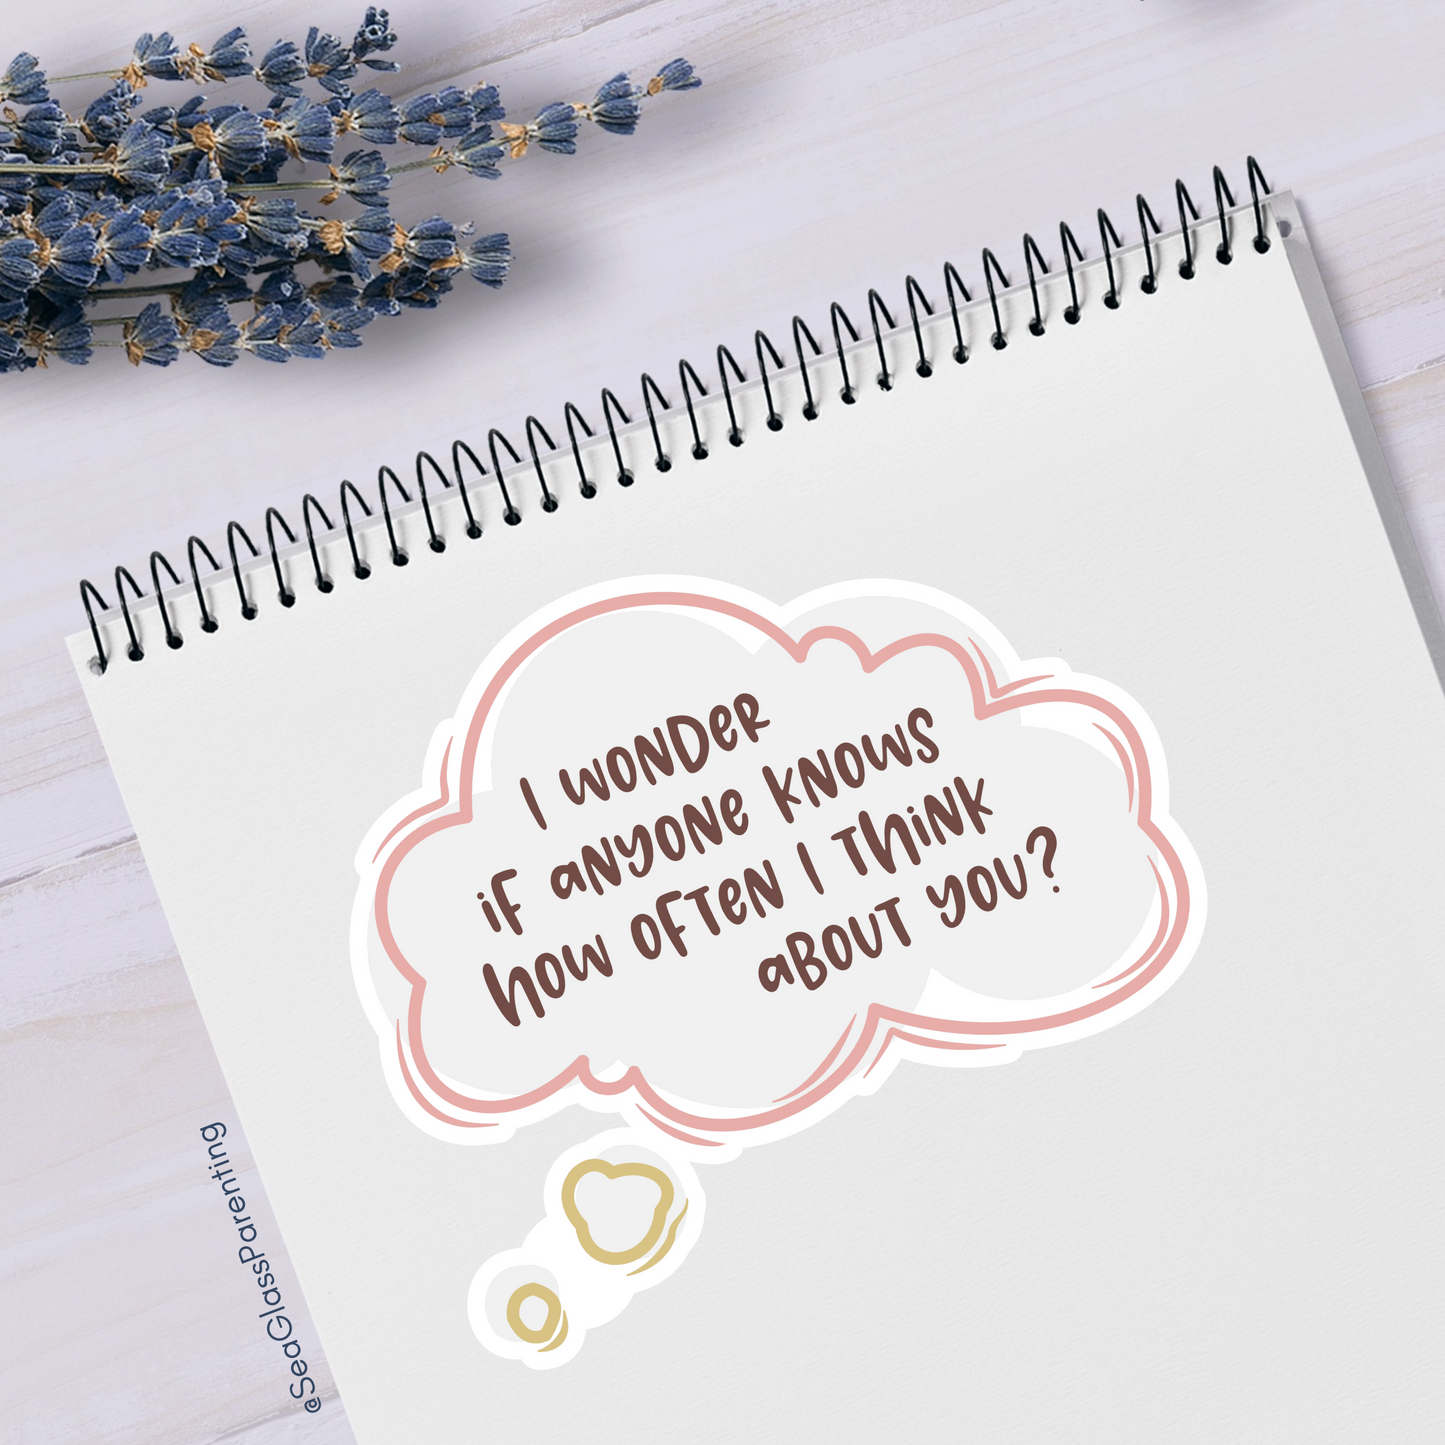 I WONDER
IF ANYONE KNOWS
HOW OFTEN I THINK
ABOUT YOU?
@SeaGlassParenting